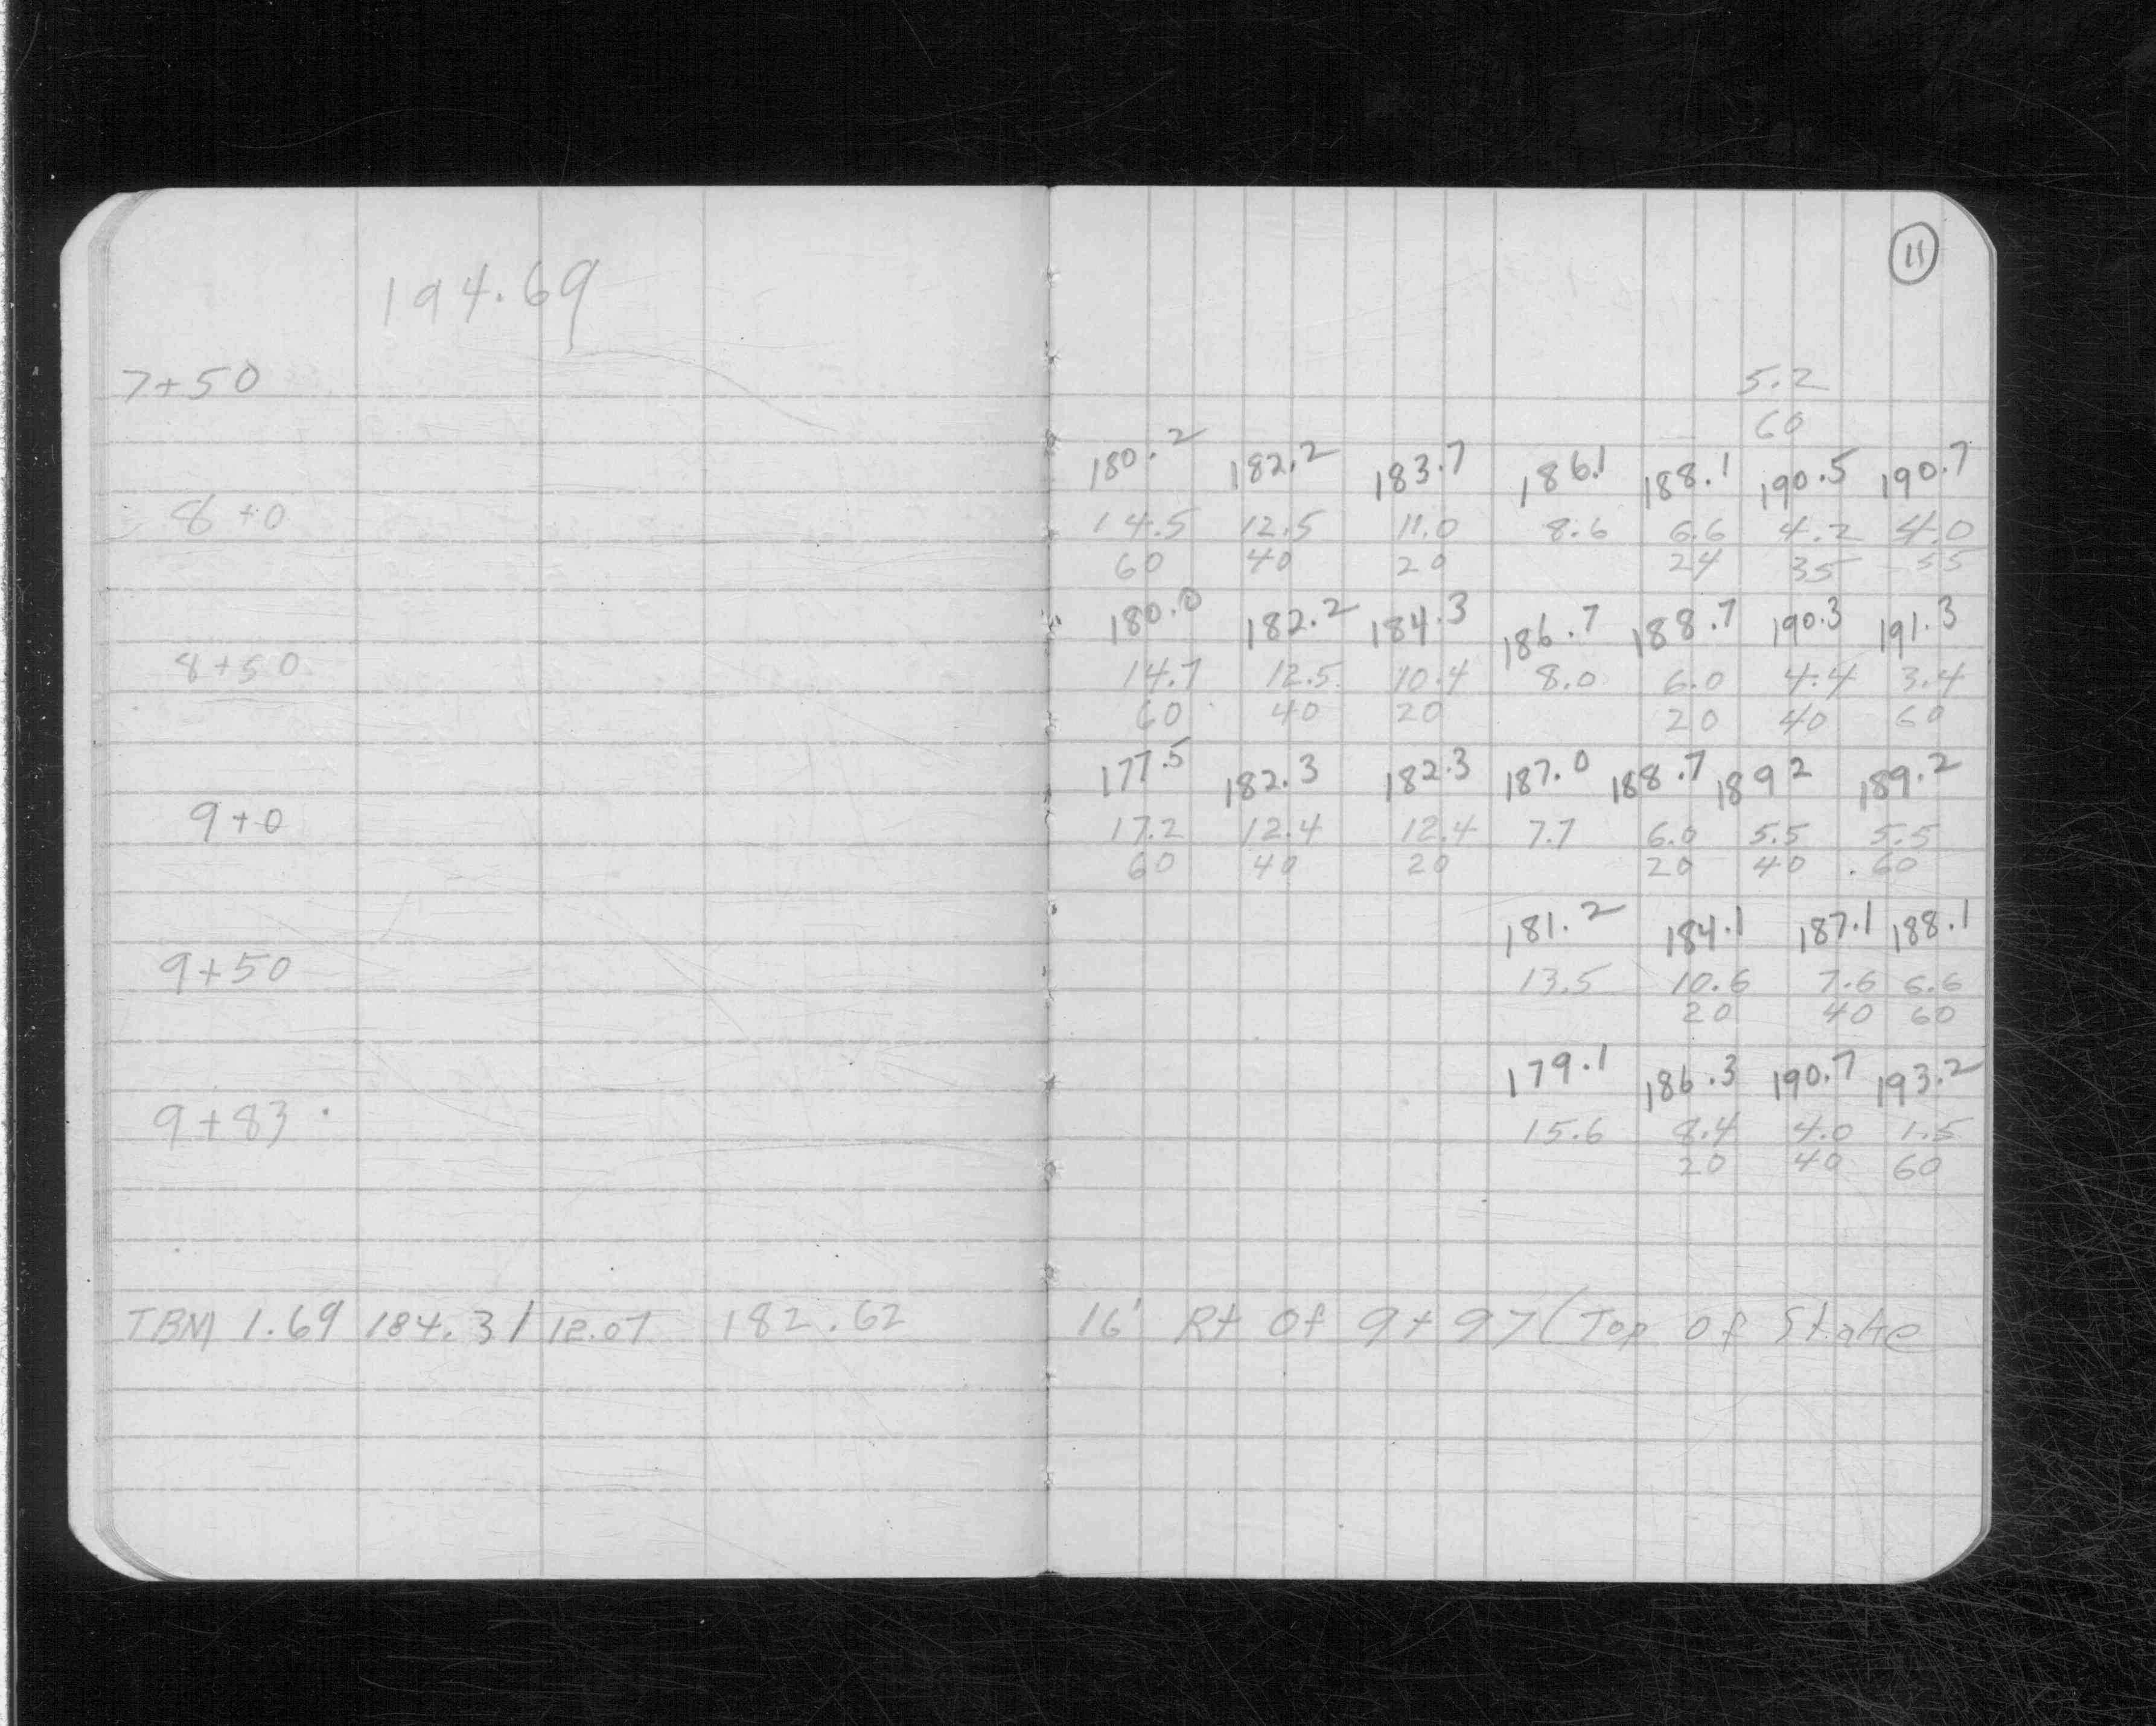 11
194.69
7+50 5.2
60
180.2 182.2 183.7 186.1 188.1 190.5 190.7
8+0 14.5 12.5 11.0 8.6 6.6 4.2 4.0
60 40 20 24 35 55
180.0 182.2 184.3 186.7 188.7 190.3 191.3
8+50 14.7 12.5 10.4 8.0 6.0 4.4 3.4
60 40 20 20 40 60
177.5 182.3 182.3 187.0 188.7 189 2 189.2
9+0 17.2 12.4 12.4 7.7 6.0 5.5 5.5
60 40 20 20 40 60
181.2 184.1 187.1 188.1
9+50 13.5 10.6 7.6 6.6
20 40 60
179.1 186.3 190.7 193.2
9+83 15.6 8.4 4.0 1.5
20 40 60
TBM 1.69 184.31 12.07 182.62 16' Rt Of 9+97 (Top of Stake